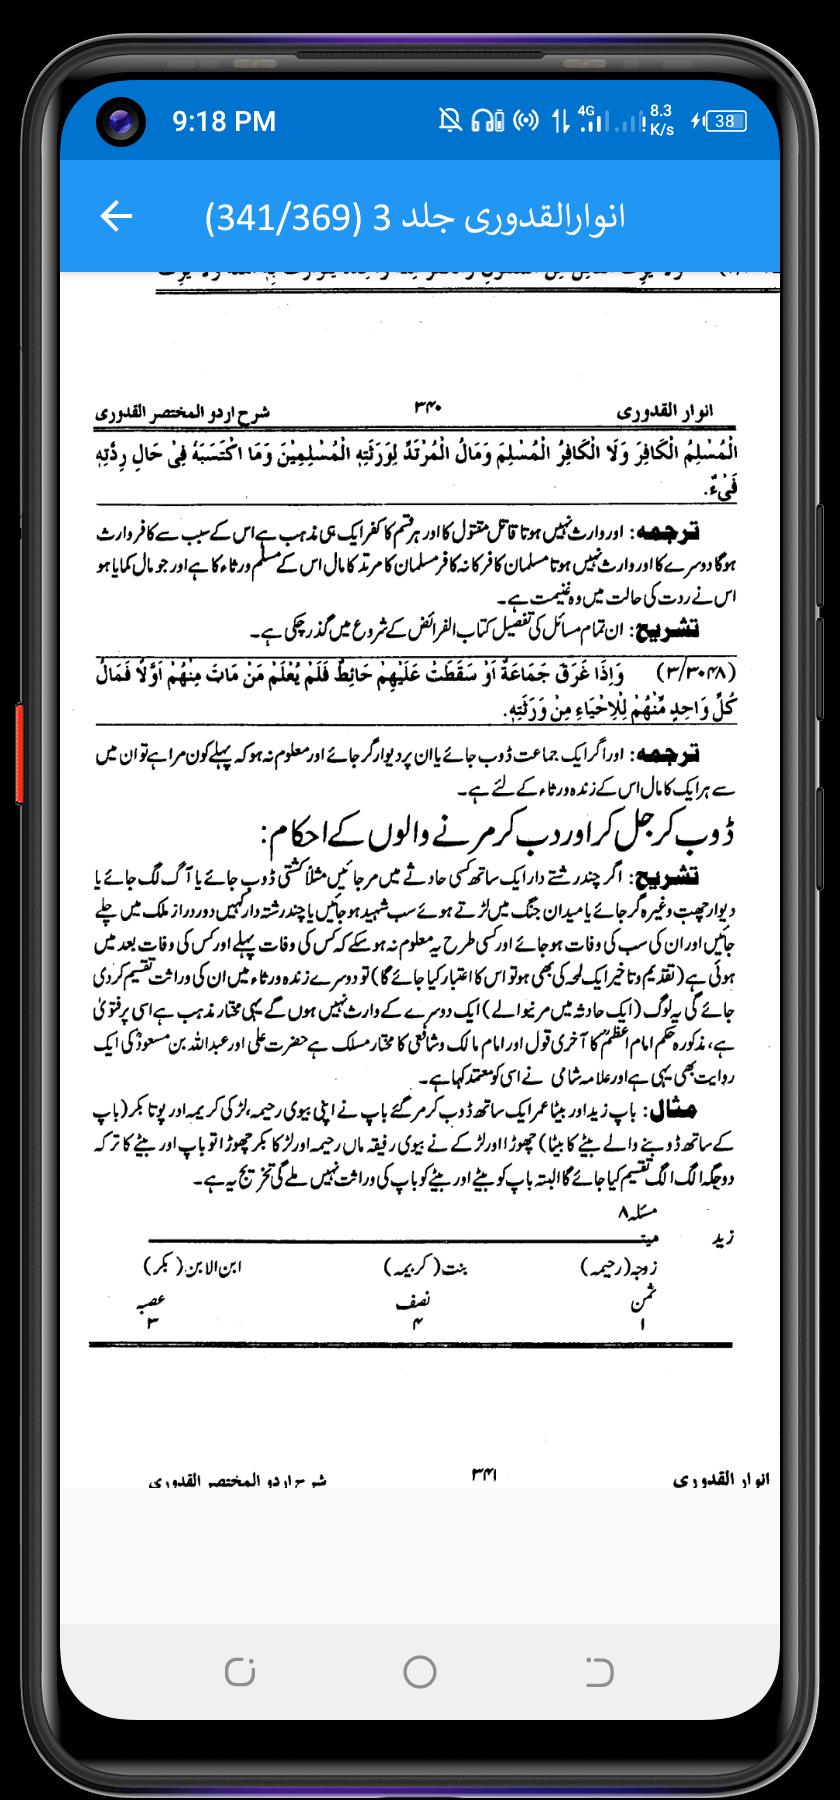 9:18 PM
4G
8.3
K/s
38
انوارالقدوری جلد 3 (341/369)
انوار القدوری ۳۴۰ شرح اردو المختصر القدوری
الْمُسْلِمُ الْكَافِرَ وَلَا الْكَافِرُ الْمُسْلِمَ وَمَالُ الْمُرْتَدِّ لِوَرَثَتِهِ الْمُسْلِمِيْنَ وَمَا اكْتَسَبَهُ فِیْ حَالِ رِدَّتِهٖ
فَیْءٌ.
ترجمه: اور وارث نہیں ہوتا قاتل مقتول کا اور ہر قسم کا کفر ایک ہی مذہب ہے اس کے سبب سے کافر وارث
ہوگا دوسرے کا اور وارث نہیں ہوتا مسلمان کافر کا نہ کافر مسلمان کا مرتد کا مال اس کے مسلم ورثاء کا ہے اور جو مال کمایا ہو
اس نے ردت کی حالت میں وہ غنیمت ہے۔
تشریح: ان تمام مسائل کی تفصیل کتاب الفرائض کے شروع میں گذر چکی ہے۔
(۳/۳۰۴۸) وَاِذَا غَرَقَ جَمَاعَةٌ اَوْ سَقَطَتْ عَلَيْهِمْ حَائِطٌ فَلَمْ يُعْلَمْ مَنْ مَاتَ مِنْهُمْ اَوَّلًا فَمَالُ
كُلِّ وَاحِدٍ مِّنْهُمْ لِلْاَحْيَاءِ مِنْ وَرَثَتِهٖ.
ترجمه: اور اگر ایک جماعت ڈوب جائے یا ان پر دیوار گر جائے اور معلوم نہ ہو کہ پہلے کون مرا ہے تو ان میں
سے ہر ایک کا مال اس کے زندہ ورثاء کے لئے ہے۔
ڈوب کر جل کر اور دب کر مرنے والوں کے احکام:
تشریح: اگر چند رشتے دار ایک ساتھ کسی حادثے میں مرجائیں مثلاً کشتی ڈوب جائے یا آگ لگ جائے یا
دیوار چھت وغیرہ گر جائے یا میدان جنگ میں لڑتے ہوئے سب شہید ہو جائیں یا چند رشتہ دار کہیں دور دراز ملک میں چلے
جائیں اور ان کی سب کی وفات ہو جائے اور کسی طرح یہ معلوم نہ ہو سکے کہ کس کی وفات پہلے اور کس کی وفات بعد میں
ہوئی ہے (تقدیم و تاخیر ایک لمحہ کی بھی ہو تو اس کا اعتبار کیا جائے گا) تو دوسرے زندہ ورثاء میں ان کی وراثت تقسیم کر دی
جائے گی یہ لوگ (ایک حادثہ میں مرنیوالے) ایک دوسرے کے وارث نہیں ہوں گے یہی مختار مذہب ہے اسی پر فتویٰ
ہے، مذکورہ حکم امام اعظمؒ کا آخری قول اور امام مالک و شافعی کا مختار مسلک ہے حضرت علی اور عبداللہ بن مسعودؓ کی ایک
روایت بھی یہی ہے اور علامہ شامی نے اسی کو معتمد کہا ہے۔
مثال: باپ زید اور بیٹا عمر ایک ساتھ ڈوب کر مر گئے باپ نے اپنی بیوی رحیمہ، لڑکی کریمہ اور پوتا بکر (باپ
کے ساتھ ڈوبنے والے بیٹے کا بیٹا) چھوڑا اور لڑکے نے بیوی رفیقہ ماں رحیمہ اور لڑکا بکر چھوڑا تو باپ اور بیٹے کا ترکہ
دو جگہ الگ الگ تقسیم کیا جائے گا البتہ باپ کو بیٹے اور بیٹے کو باپ کی وراثت نہیں ملے گی تخریج یہ ہے۔
مسئلہ ۸
زید میت
زوجہ (رحیمہ) بنت (کریمہ) ابن الابن (بکر)
ثمن نصف عصبہ
۱ ۴ ۳
انوار القدوری ۳۴۱ شرح اردو المختصر القدوری